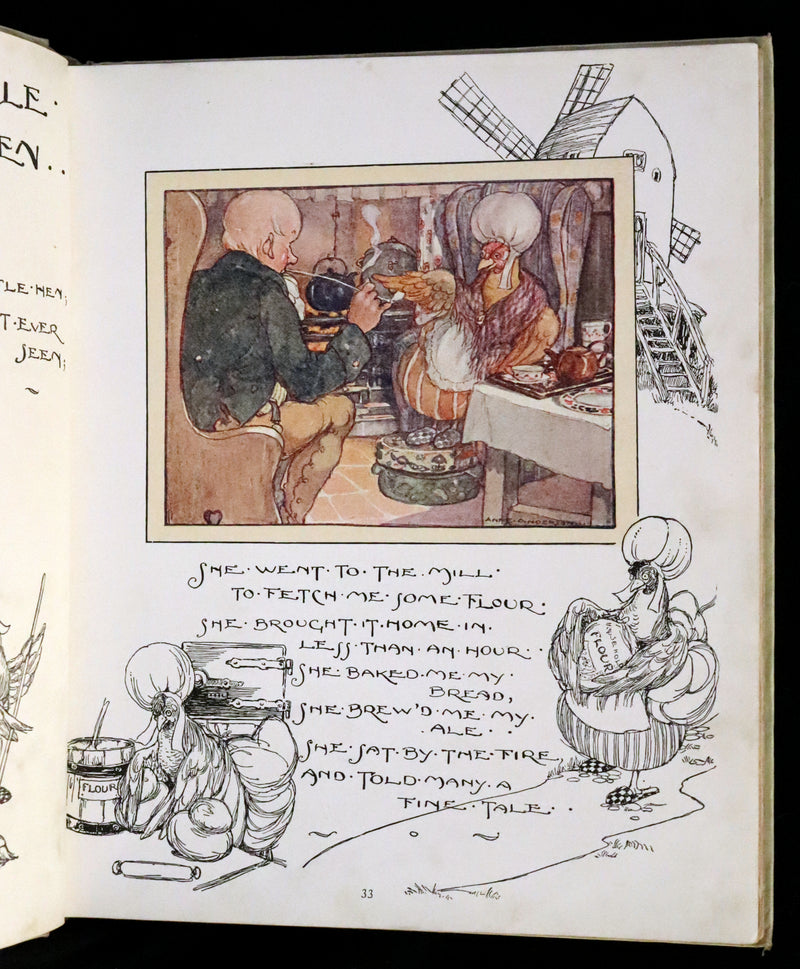 LE.
EN..
TLE·HEN;
T·EVER
SEEN;
ANNE·ANDERSON
SHE·WENT·TO·THE·MILL·
TO·FETCH·ME·SOME·FLOUR·
SHE·BROUGHT·IT·HOME·IN·
LESS·THAN·AN·HOUR··
SHE·BAKED·ME·MY·
BREAD,
SHE·BREW'D·ME·MY·
ALE··
SHE·SAT·BY·THE·FIRE
AND·TOLD·MANY·A
FINE·TALE··
HOUSEHOLD
FLOUR
FLOUR
33